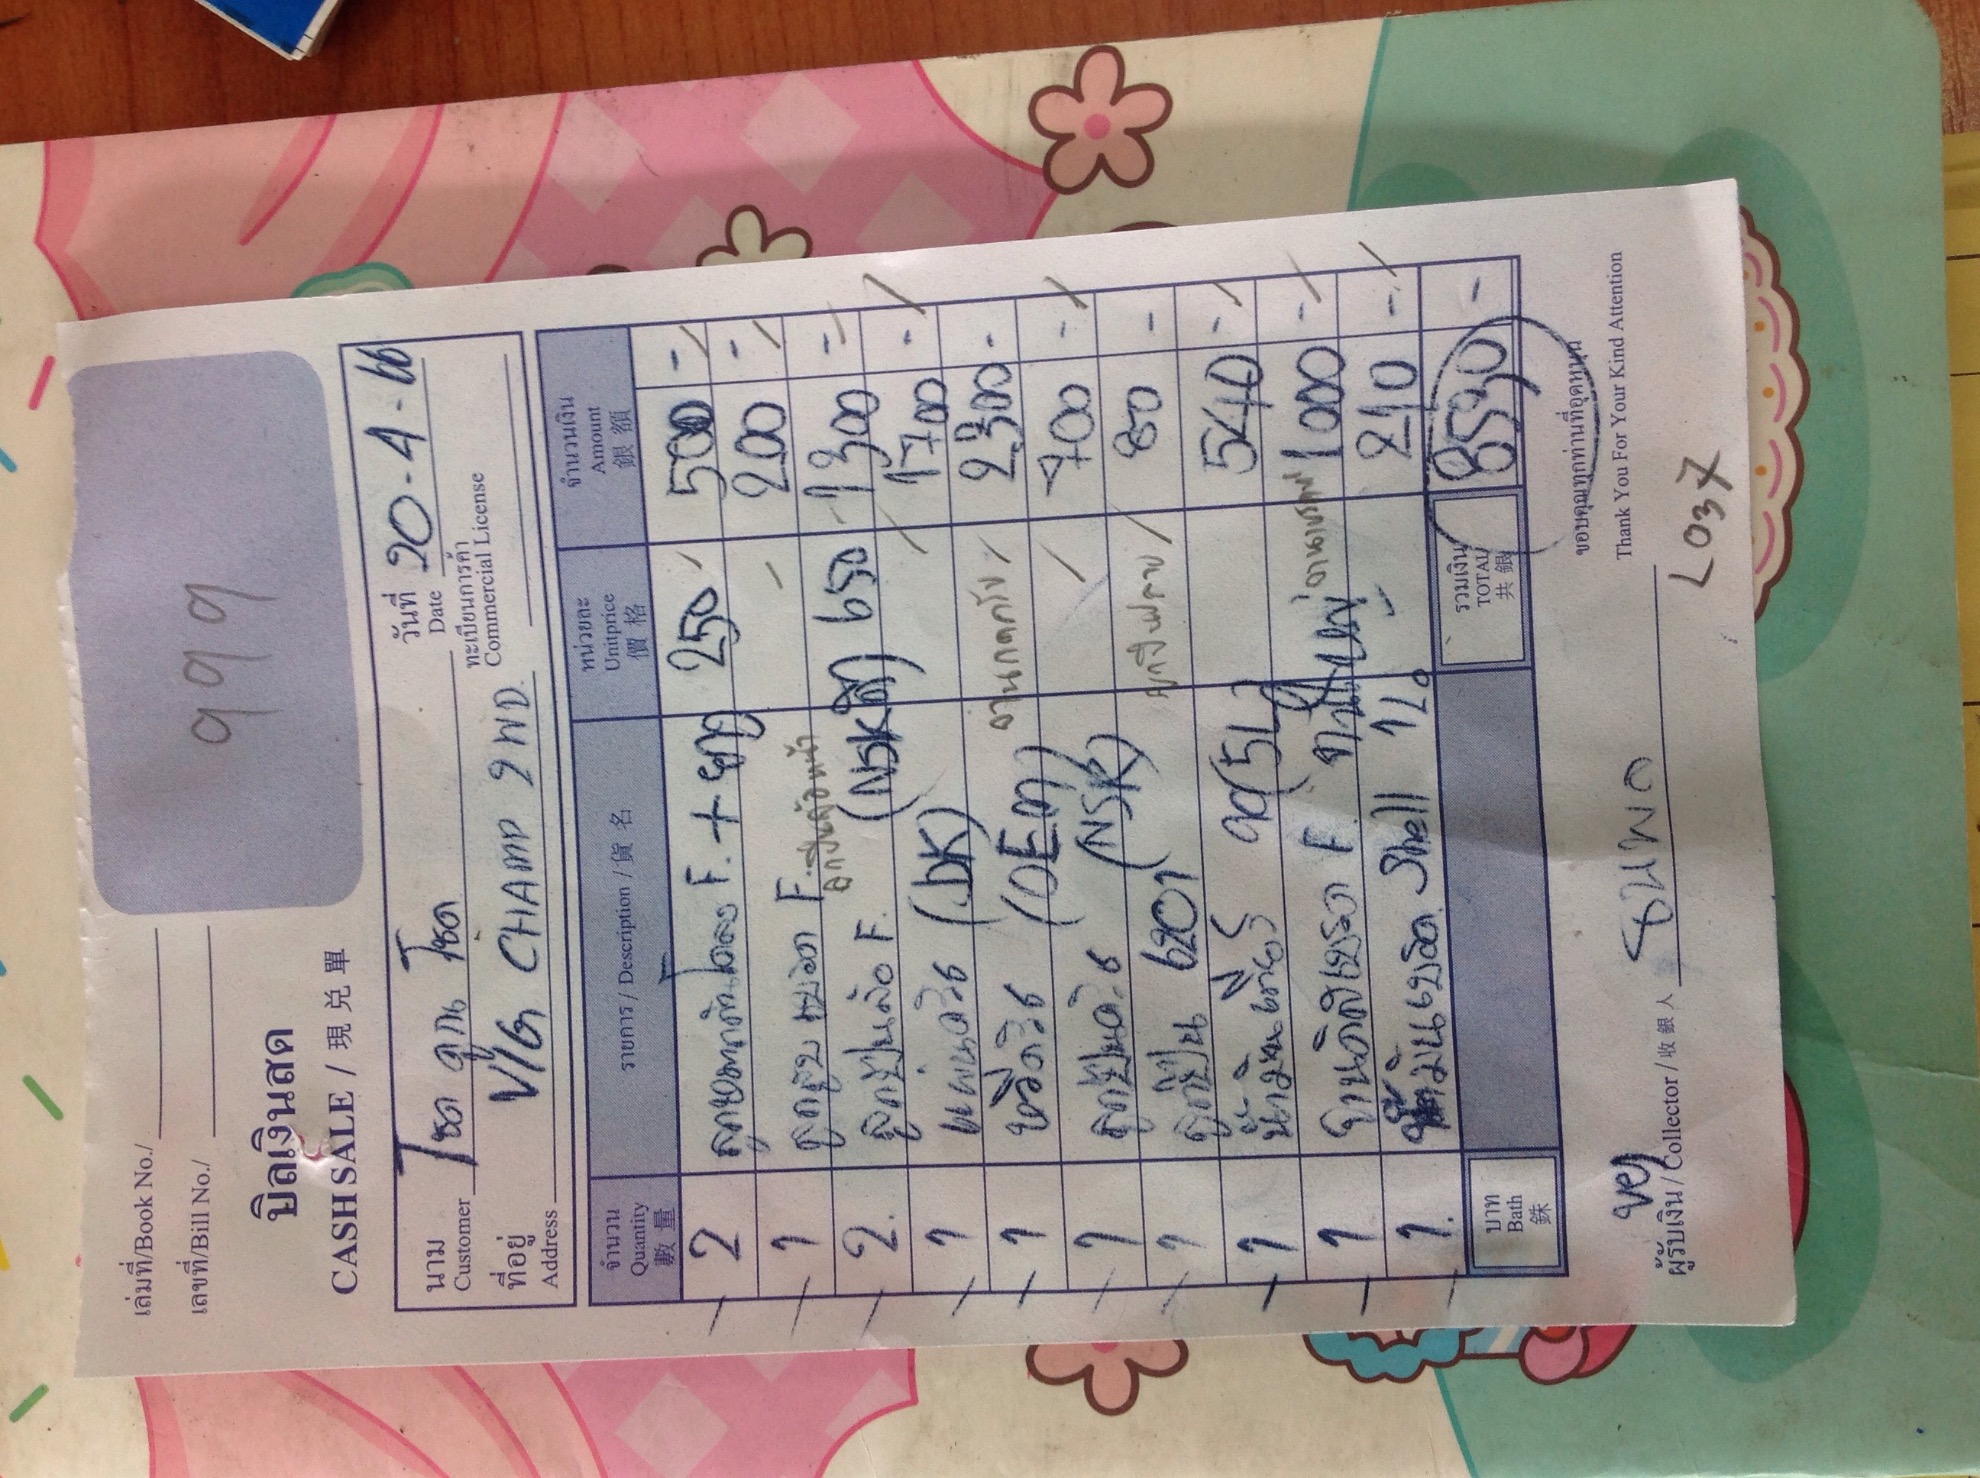 999
เล่มที่/Book No./
เลขที่/Bill No./
บิลเงินสด
CASH SALE / 現兑單
วันที่ 20-4-66
Date
นาม โชค ลูก โชค
Customer
ทะเบียนการค้า
Commercial License
ที่อยู่ V/G CHAMP 2WD.
Address
จำนวน รายการ / Description / 貨名 หน่วยละ จำนวนเงิน
Quantity Unitprice Amount
數量 價格 銀額
2 ลูกหมากกันโคลง F. + 250 500 -
1 ลูกสูบเบรค F. 200 -
ลูกปืนล้อหน้า
2. ลูกปืนล้อ F. (NSK) 650 1300 =
1 แผ่นคลัช (DK) 1700 -
1 หวีคลัช (OEM) จานกดคลัช 2,300 -
1 ลูกปืนคลัช (NSK) 700 -
1 ลูกปืน 6201 80 -
1 น้ำมันเกียร์ 90 (5L) 540 -
1 จานดิสเบรค F. จานเบรค 1000 -
1. น้ำมันเบรค Shell 1L. 210 -
บาท
Bath
銖
รวมเงิน
TOTAL
共銀
8530 -
ขอบคุณทุกท่านที่อุดหนุน
Thank You For Your Kind Attention
ผู้รับเงิน / Collector / 收銀人
L037